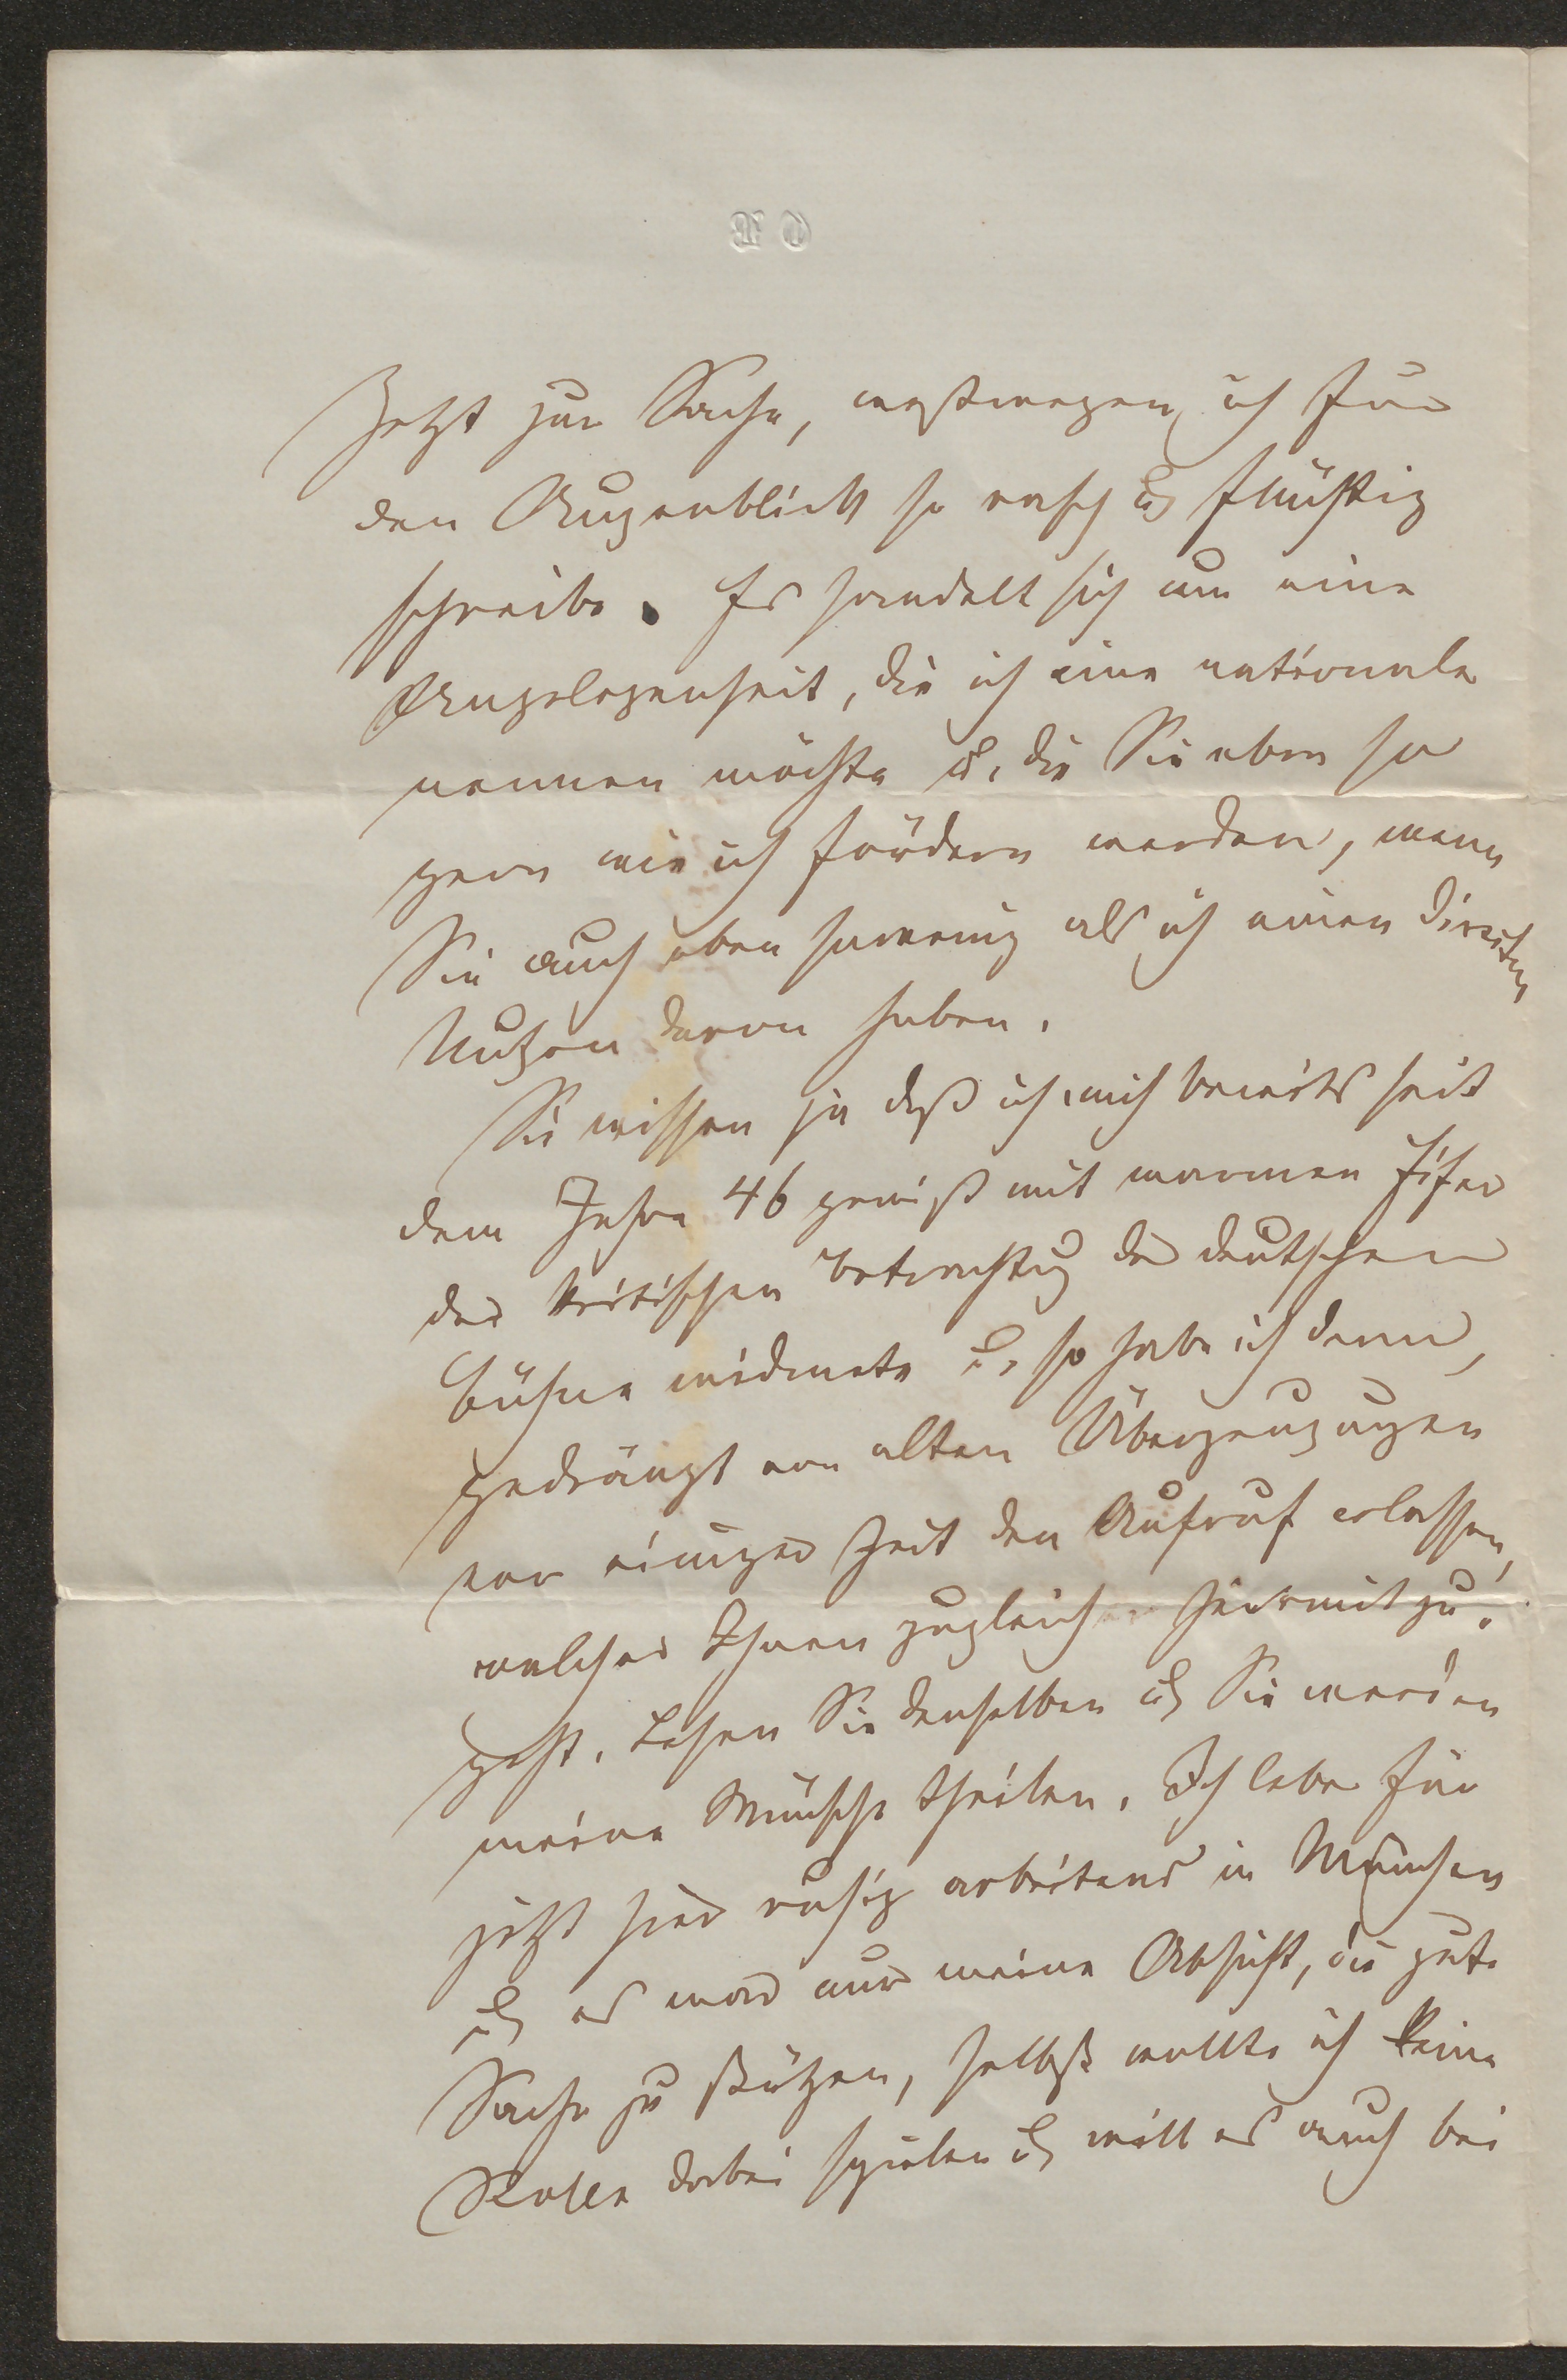 Jetzt zur Sache, weßwegen ich für
den Augenblick so rasch u. flüchtig
schreibe. Es handelt sich um eine
Angelegenheit, die ich eine nationale
nennen möchte u. die Sie eben so
gern wie ich fördern werden, wenn
Sie auch eben sowenig als ich einen direkten
Nutzen davon haben.
Sie wissen ja daß ich mich bereits seit
dem Jahre 46 gewiß mit warmen Eifer
der kritischen Betrachtug der deutschen
Bühne widmete u. so habe ich denn,
gedrängt von alten Überzeugungen
vor einiger Zeit den Aufruf erlassen,
welcher Ihnen zugleich hiermit zu
geht. Lesen Sie denselben u. Sie werden
meine Wünsche theilen. Ich lebe für
jetzt hier ruhig arbeitend in München
u. es war nur meine Absicht, die gute
Sache zu stützen, selbst wollte ich keine
Rolle dabei spielen u. will es auch bei